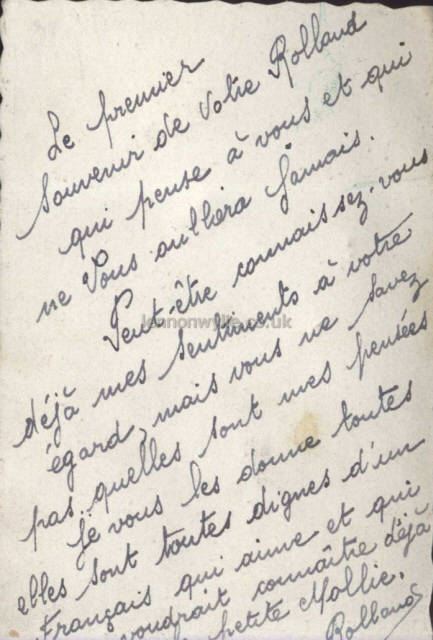 Le premier
souvenir de Votre Rolland
qui pense à vous et qui
ne Vous oubliera Jamais.
Peut-être connaissez-vous
déjà mes sentiments à votre
égard, mais vous ne savez
pas quelles sont mes pensées
Je vous les donne toutes
elles sont toutes dignes d'un
Français qui aime et qui
voudrait connaître déjà
petite Mollie.
Rolland
lennonwylie.co.uk